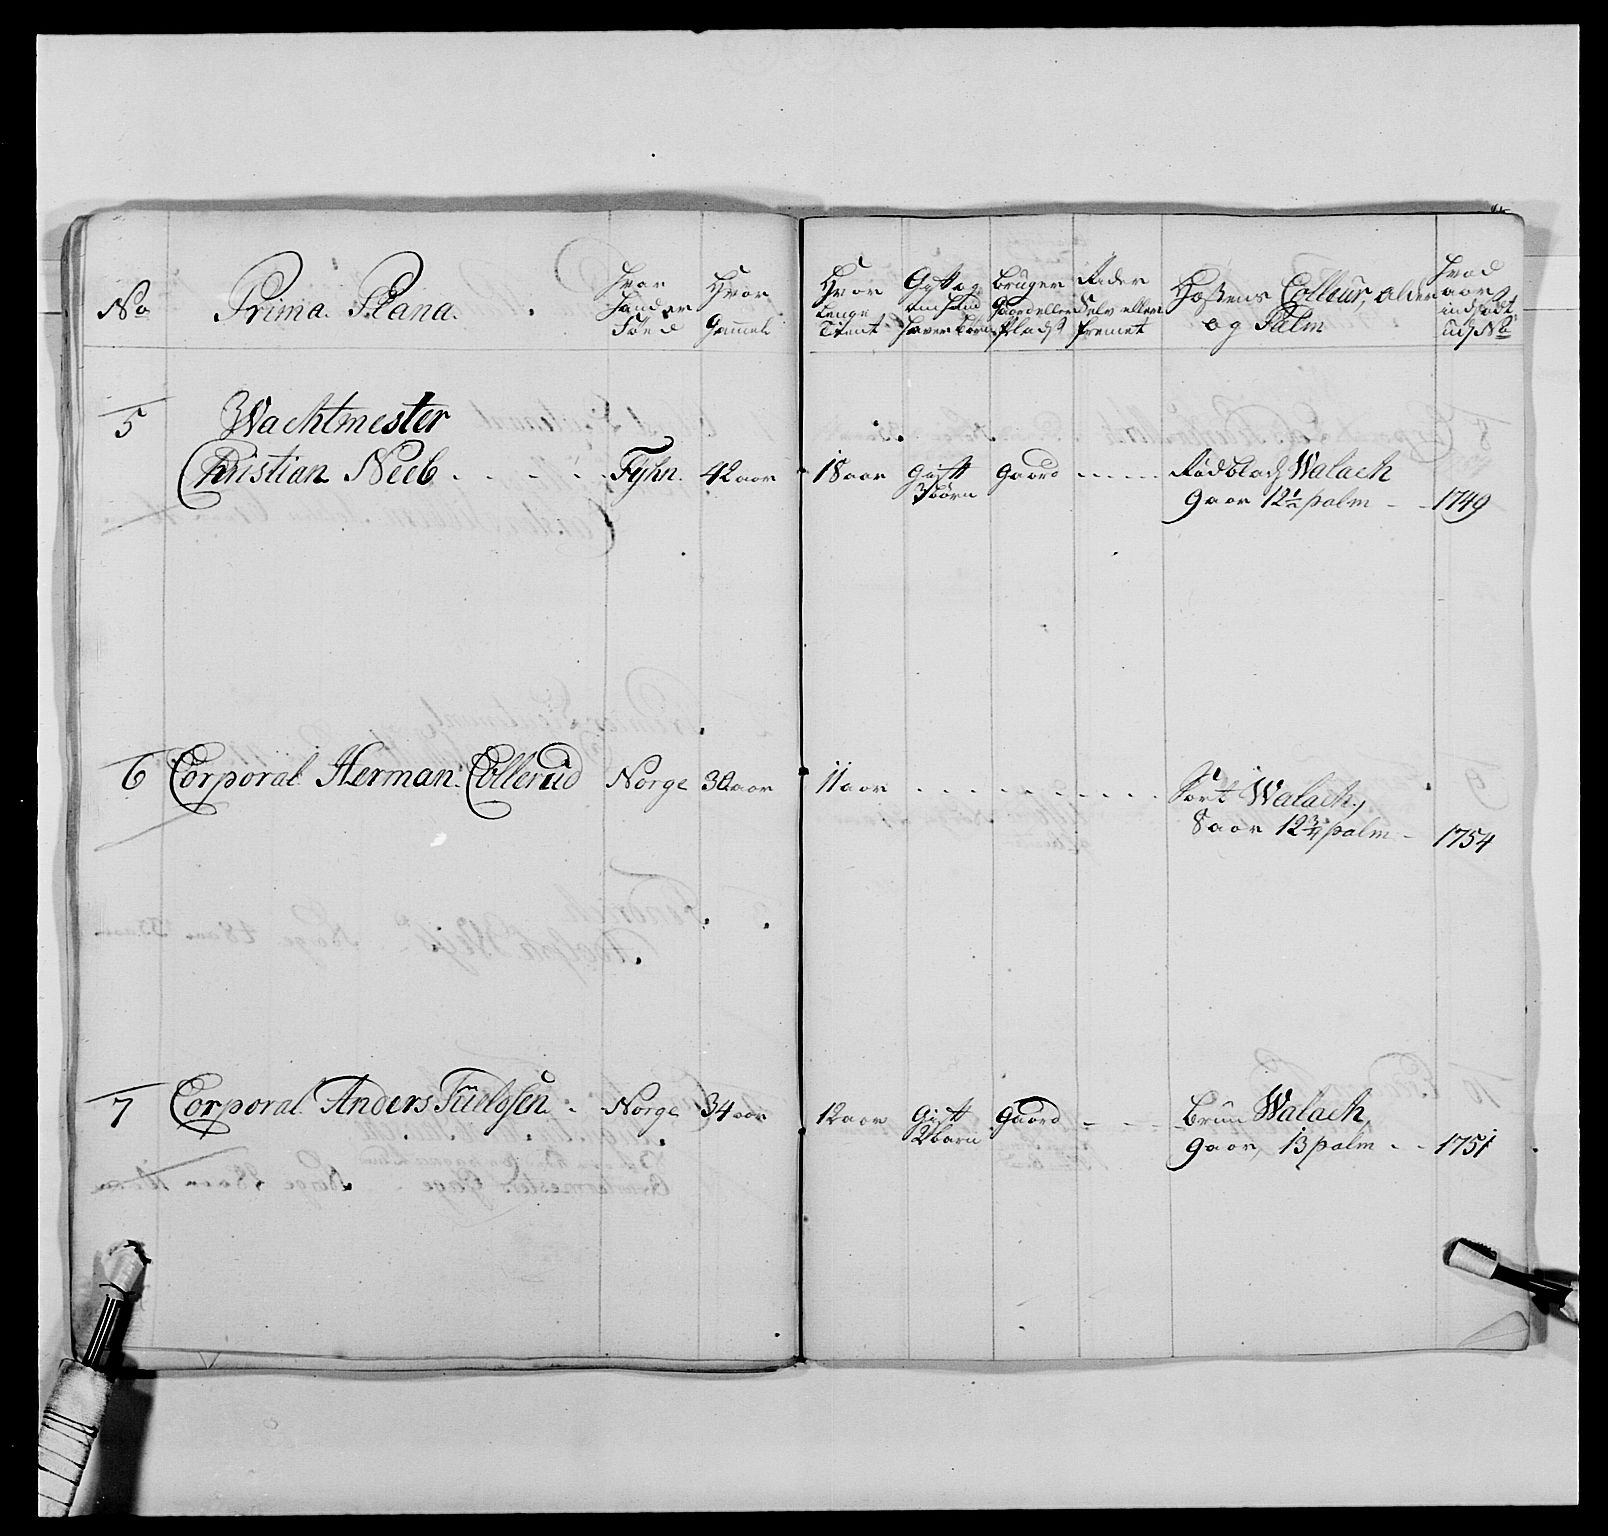 No
Prima Plana.
Hvor
Hand er
Fød
Hvor
Gammel
Hvor
Lenge
Tient
Gift og
om hand
haver børn
Bruger
Gaard eller
Plads
Rider
Selv eller
fremet
Hæstens Colleur, alder
og Palm
Hvad
aar
ind
ud No
5
Wachtmester
Christian Neeb
Fyhn.
42 aar
18 aar
Gift
3 børn
Gaard
Rødblads Walach
9 aar 12½ palm
1749
6
Corporal Herman Collerud
Norge
30 aar
11 aar
Sort Walach,
8 aar 12¾ palm
1754
7
Corporal Anders
Norge
34 aar
12 aar
Gift
2 barn
Gaard
Brun Walach
9 aar, 13 palm
1751